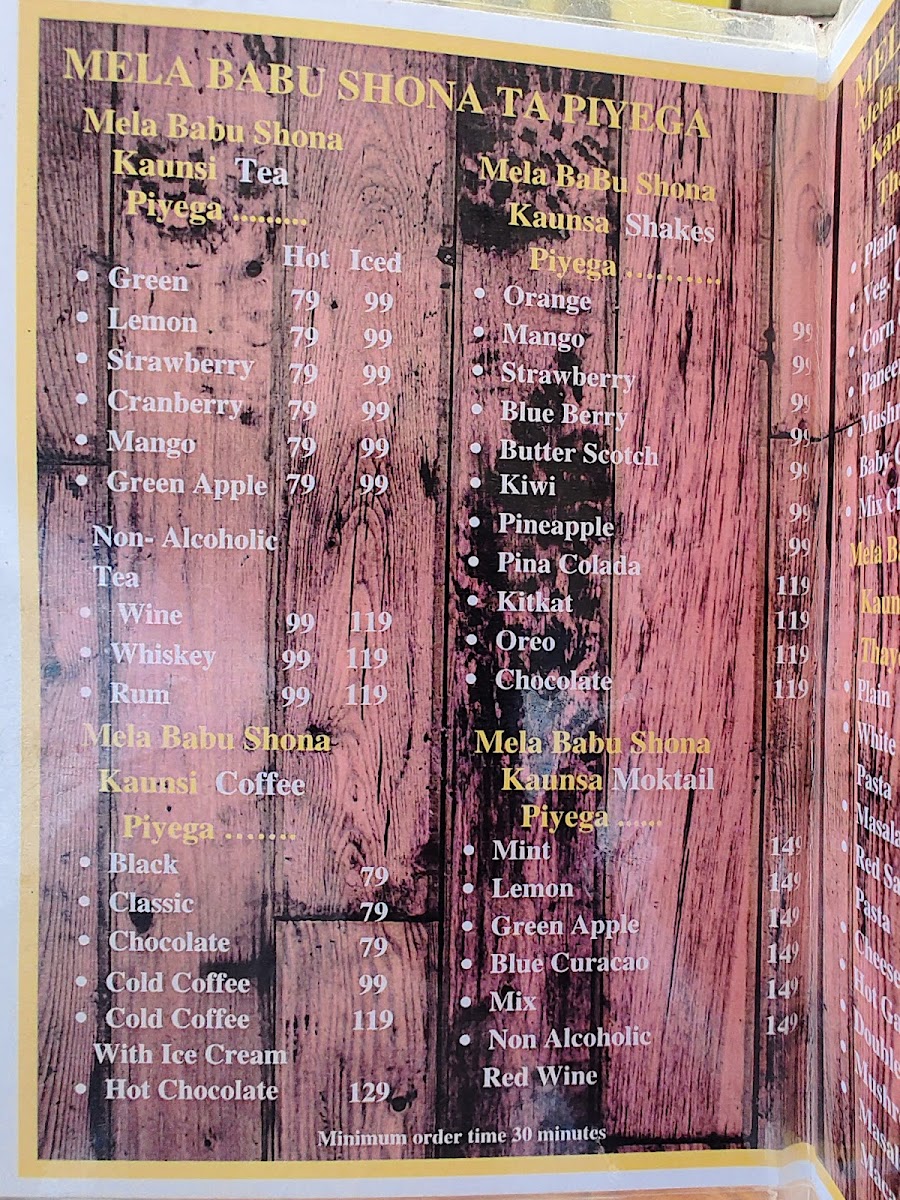 MELA BABU SHONA TA PIYEGA
Mela Babu Shona
Kaunsi Tea
Piyega .........
Hot Iced
• Green 79 99
• Lemon 79 99
• Strawberry 79 99
• Cranberry 79 99
• Mango 79 99
• Green Apple 79 99
Non- Alcoholic
Tea
• Wine 99 119
• Whiskey 99 119
• Rum 99 119
Mela Babu Shona
Kaunsi Coffee
Piyega .......
• Black 79
• Classic 79
• Chocolate 79
• Cold Coffee 99
• Cold Coffee 119
With Ice Cream
• Hot Chocolate 129
Mela BaBu Shona
Kaunsa Shakes
Piyega ..........
• Orange 99
• Mango 99
• Strawberry 99
• Blue Berry 99
• Butter Scotch 99
• Kiwi 99
• Pineapple 99
• Pina Colada 119
• Kitkat 119
• Oreo 119
• Chocolate 119
Mela Babu Shona
Kaunsa Moktail
Piyega ......
• Mint 149
• Lemon 149
• Green Apple 149
• Blue Curacao 149
• Mix 149
• Non Alcoholic 149
Red Wine
Minimum order time 30 minutes
Mela
• Plain
• Veg.
• Corn
• Baby
• Mix
Mela
• Plain
• White
Pasta
• Masala
• Red
Pasta
• Hot